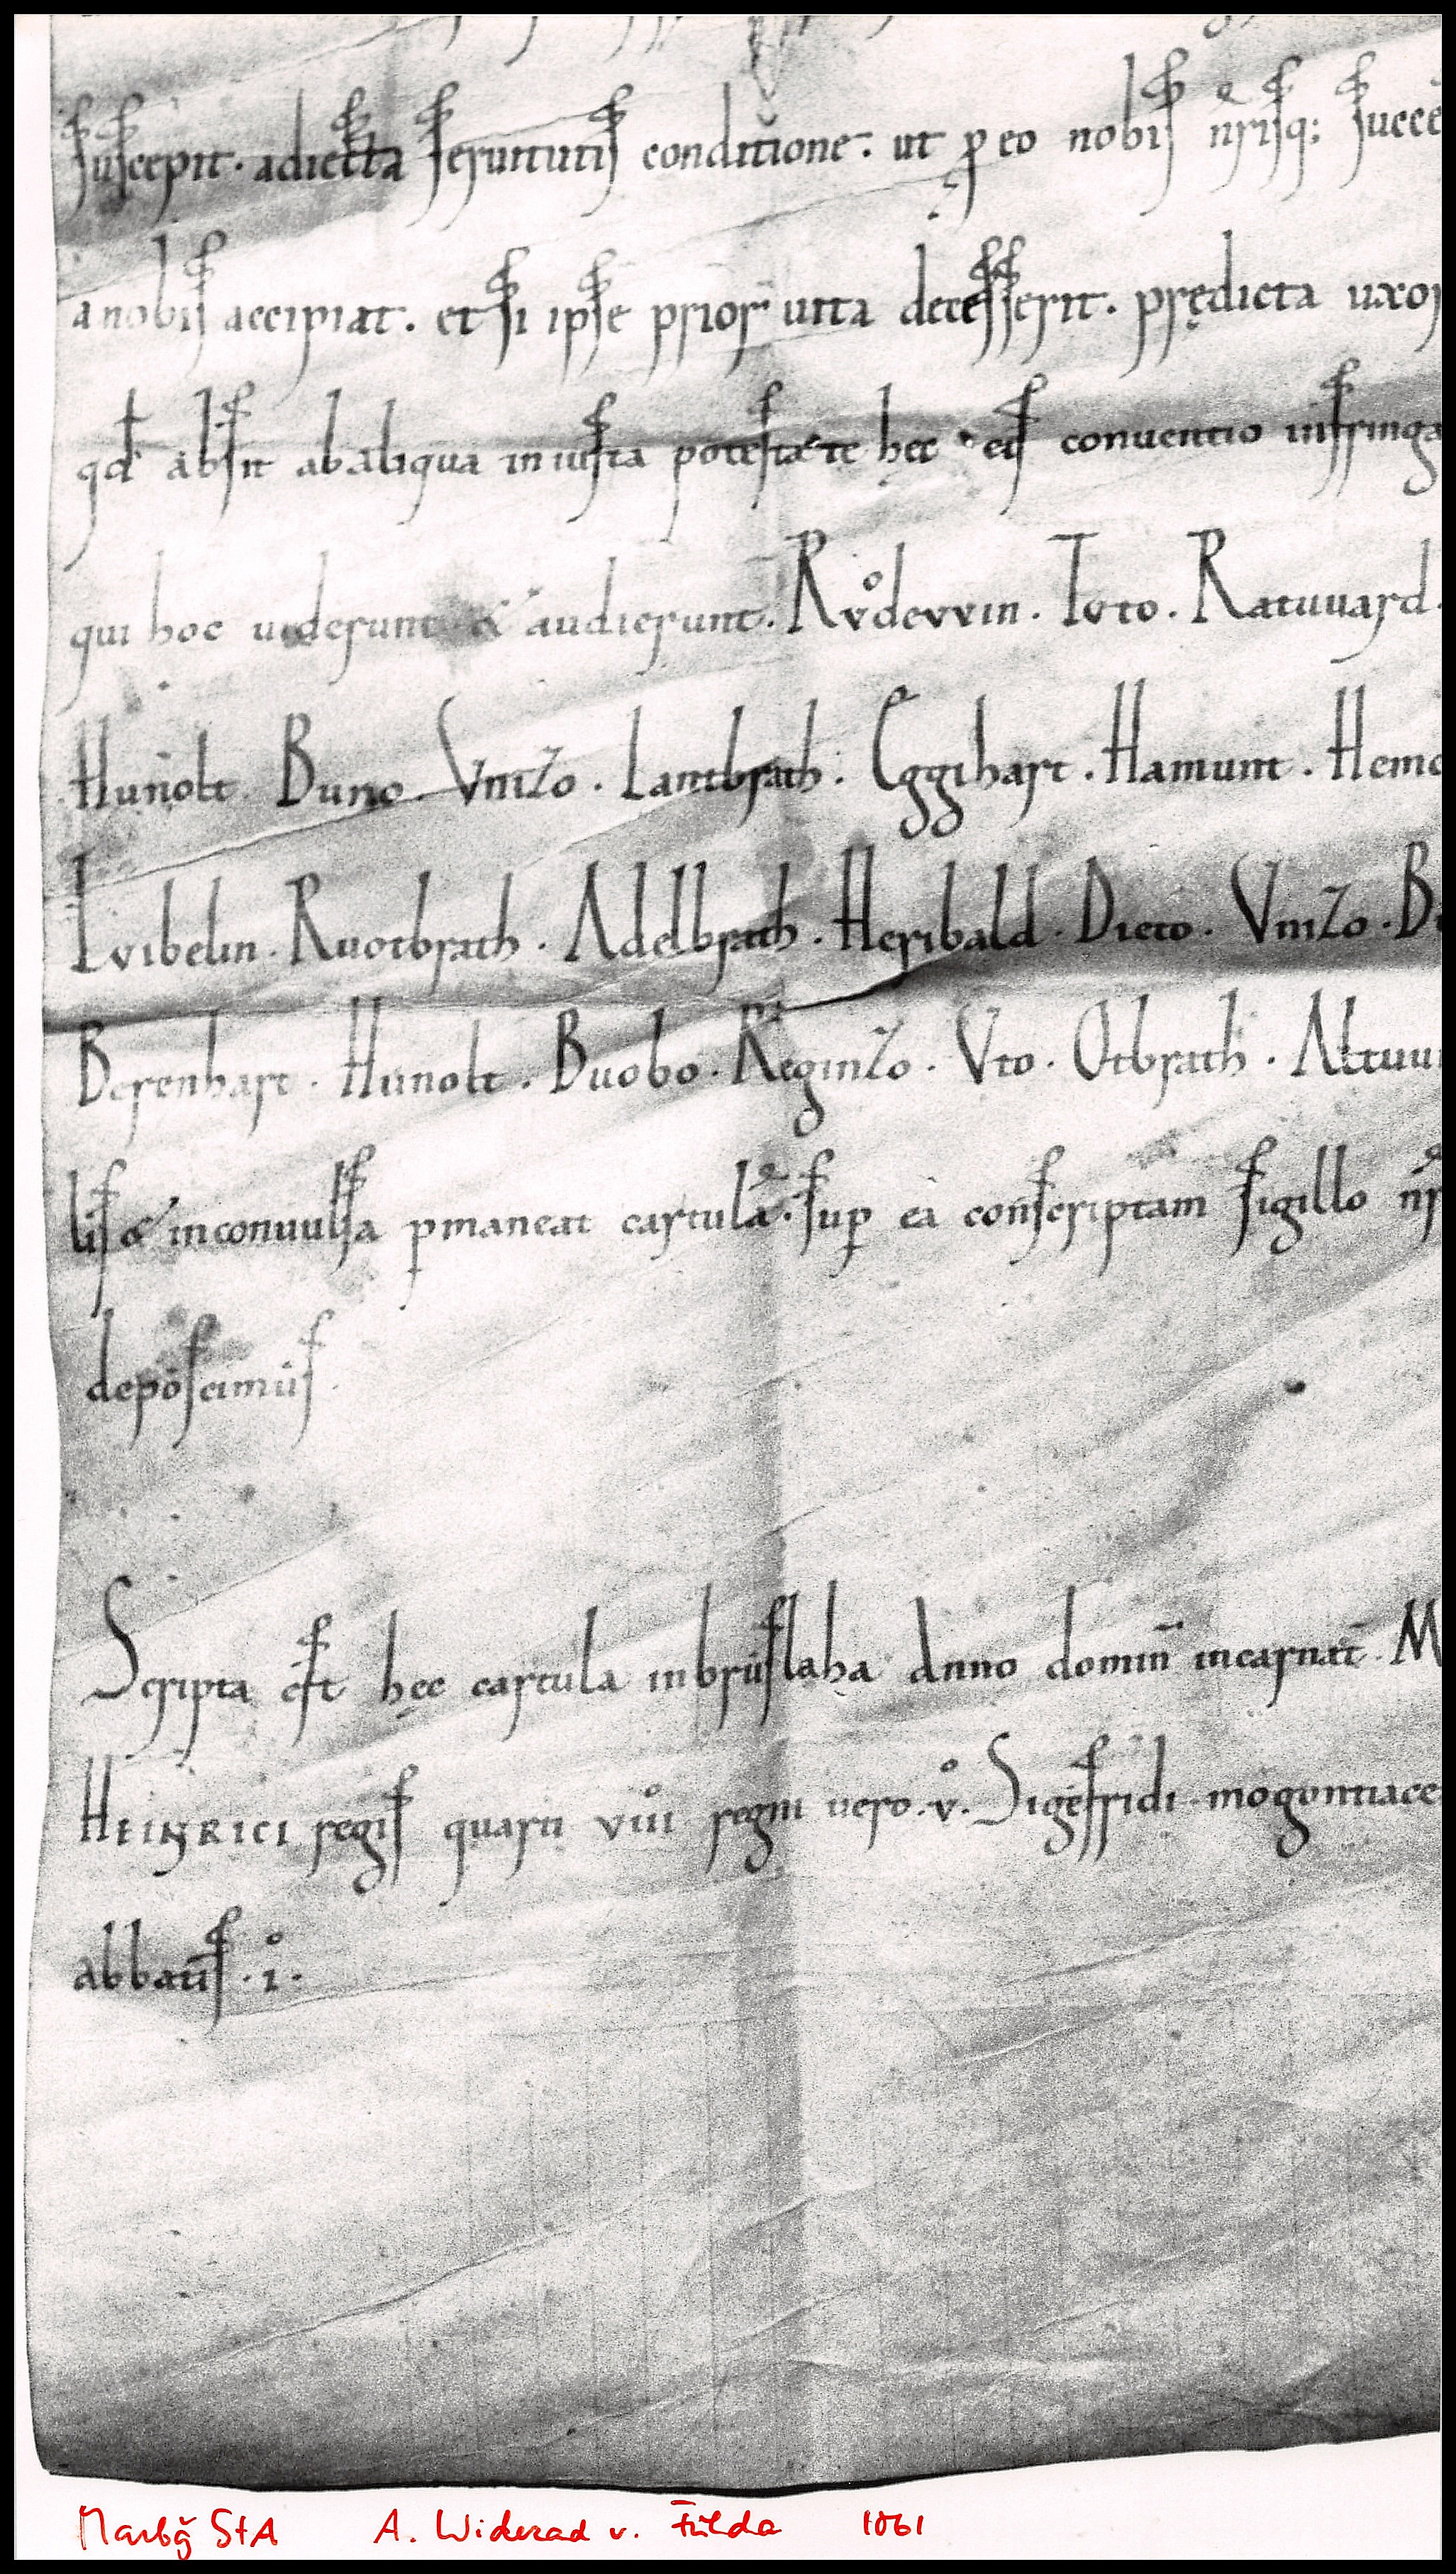 suscepit. adiecta seruitutis conditione. ut ꝓ eo nobis nr̄isq; succe
a nobis accipiat. et si ipse prior uita decesserit. prędicta uxor
qd̄ absit ab aliqua iniusta potestate hęc eis conuentio infringa
qui hoc uiderunt & audierunt. Růdevvin. Toto. Ratuuard.
Hunolt. Buno. Vnizo. Lantbrath. Eggihart. Hamunt. Hemo
Lvibelin. Ruotbrath. Adelbrath. Heribald. Dieto. Vnizo. B
Berenhart. Hunolt. Buobo. Reginzo. Vto. Otbrath. Altuui
lis & inconuulsa ꝑmaneat cartula. suꝑ ea conscriptam sigillo nr̄
deposcimus.
Scripta est hęc cartula in bruslaha anno domin̄ incarnat̄. M
HEINRICI regis quarti viii regni uero. v̊. Sigefridi mogontiace
abbatis. i̊.
Marbg StA A. Widerad v. Fulda 1061